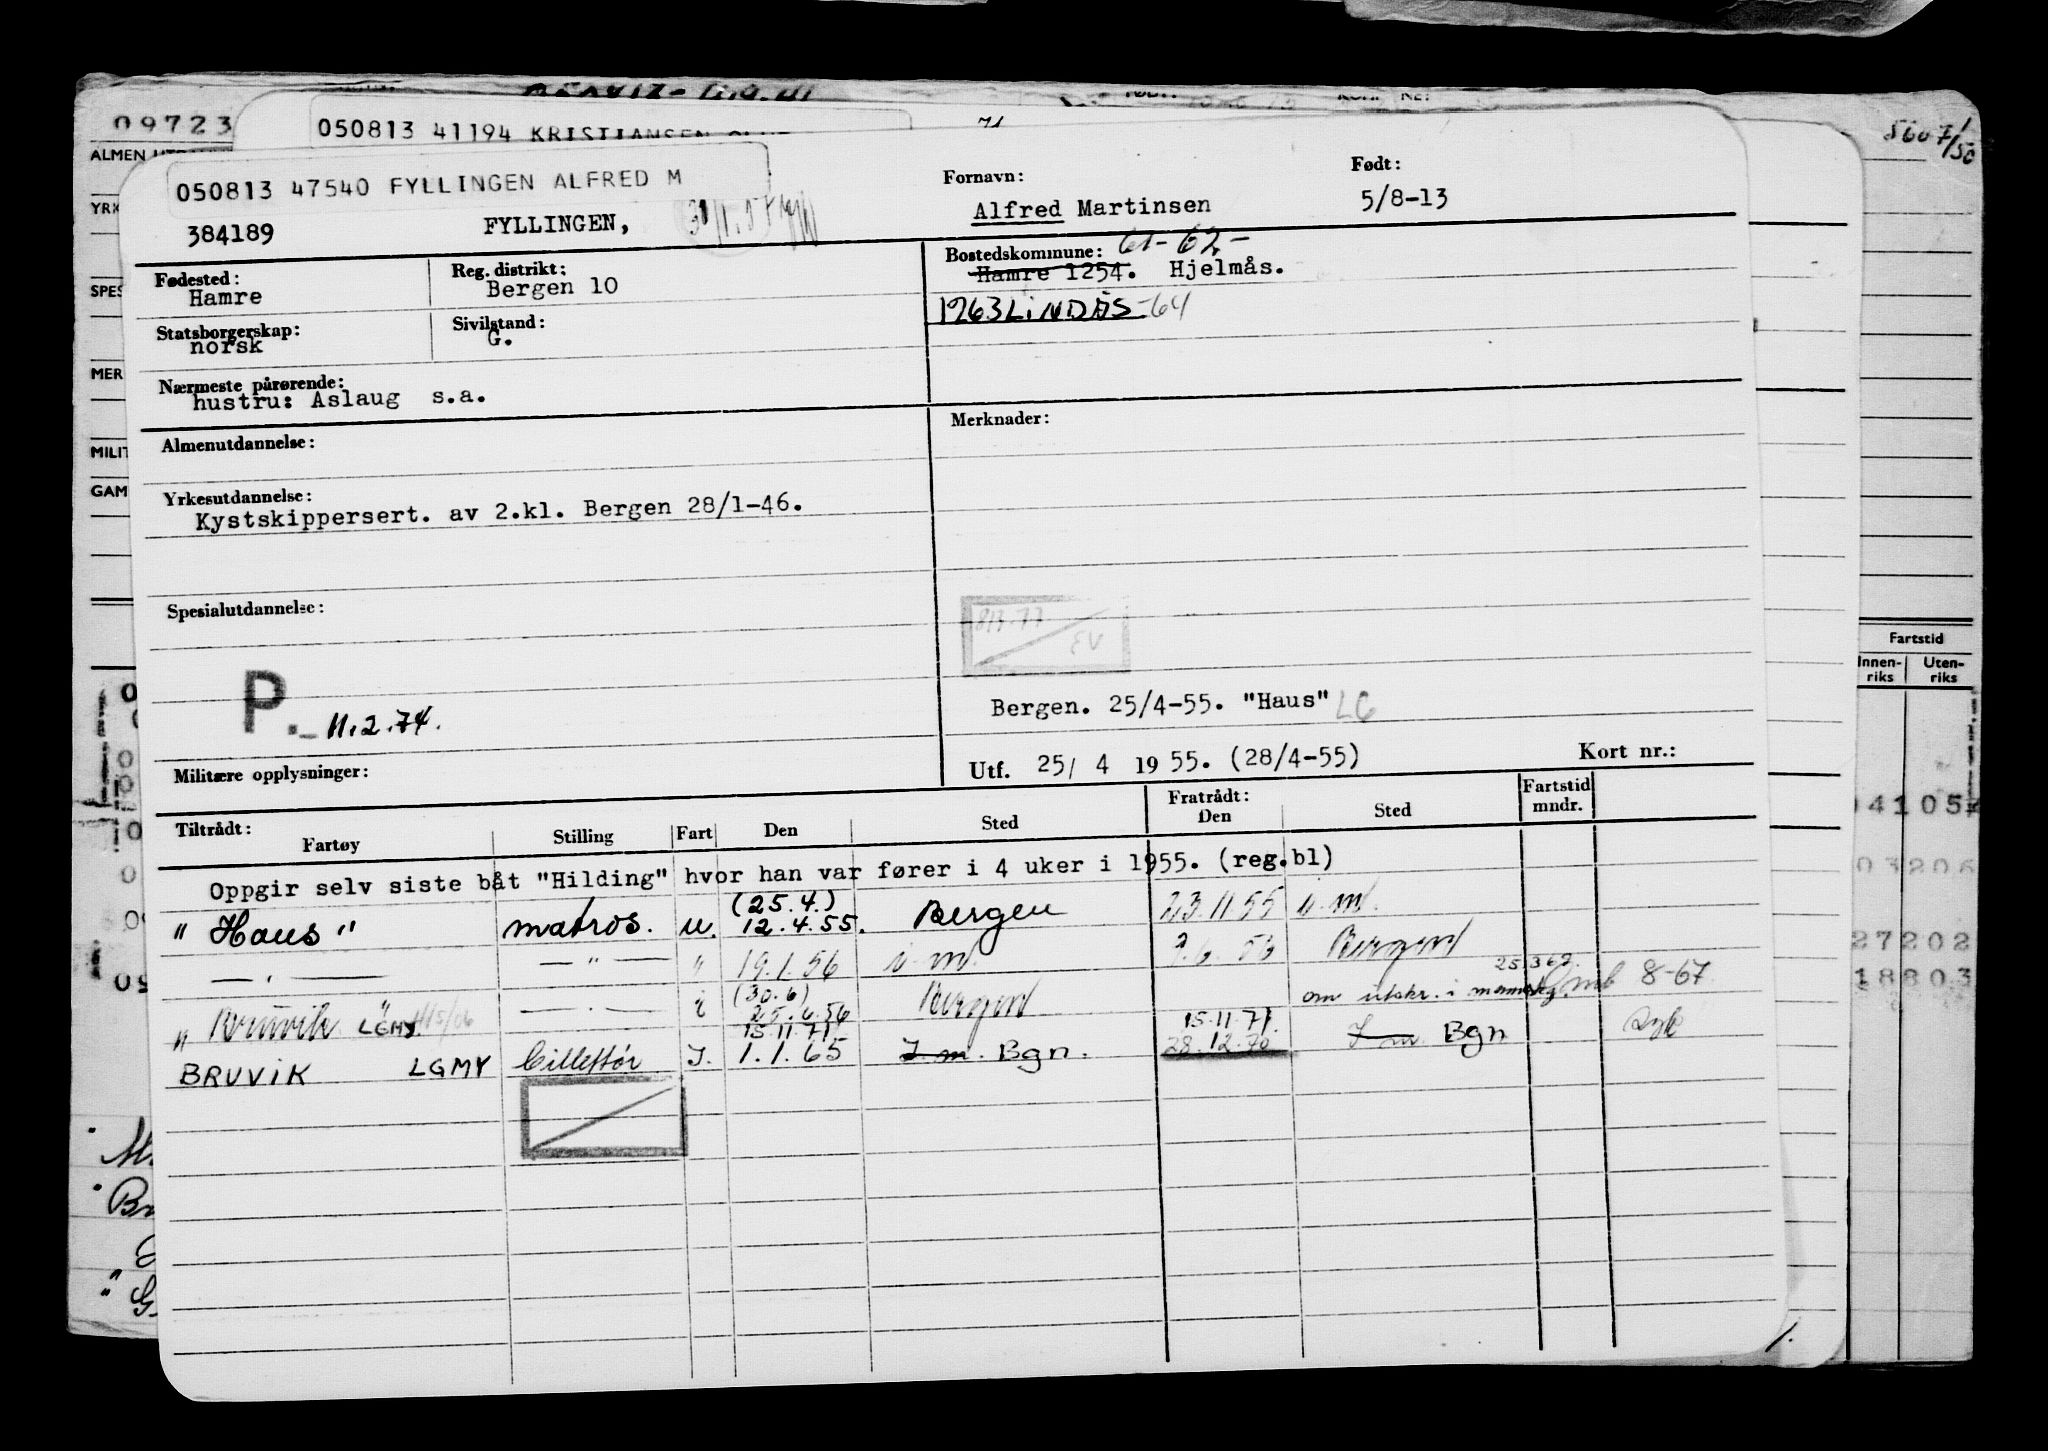 09723
5607/50
050813 41194 KRISTIANSEN
ALMEN
050813 47540 FYLLINGEN ALFRED M
384189 FYLLINGEN,
Fornavn: Alfred Martinsen
Født: 5/8-13
YRK
SPES
MER
MILIT
GAM
Fødested: Hamre
Reg. distrikt: Bergen 10
Bostedskommune: 61-62-
Hamre 1254. Hjelmås.
1963 LINDÅS-64
Statsborgerskap: norsk
Sivilstand: G.
Nærmeste pårørende: hustru: Aslaug s.a.
Almenutdannelse:
Merknader:
Yrkesutdannelse:
Kystskippersert. av 2.kl. Bergen 28/1-46.
Spesialutdannelse:
EV
P. 11.2.74.
Bergen. 25/4-55. "Haus" LG
Militære opplysninger:
Utf. 25/ 4 19 55. (28/4-55) Kort nr.:
Fartstid
Innen-riks Uten-riks
Tiltrådt: Fratrådt:
Fartøy Stilling Fart Den Sted Den Sted Fartstid mndr.
Oppgir selv siste båt "Hilding" hvor han var fører i 4 uker i 1955. (reg.bl)
(25.4.)
" Haus " matros. u. 12.4.55. Bergen 23.11.55 i.m.
— " — — " — " 19.1.56 i.m. 6.56 Bergen
(30.6) 25.362.
" Bruvik " LGMY — " — i 25.6.56 Bergen om utskr. i 8-67
15.11.71 15.11.71.
BRUVIK LGMY I. 1.1.65 I m. Bgn. 28.12.70 I m. Bgn Syk
04105
03206
27202
18803